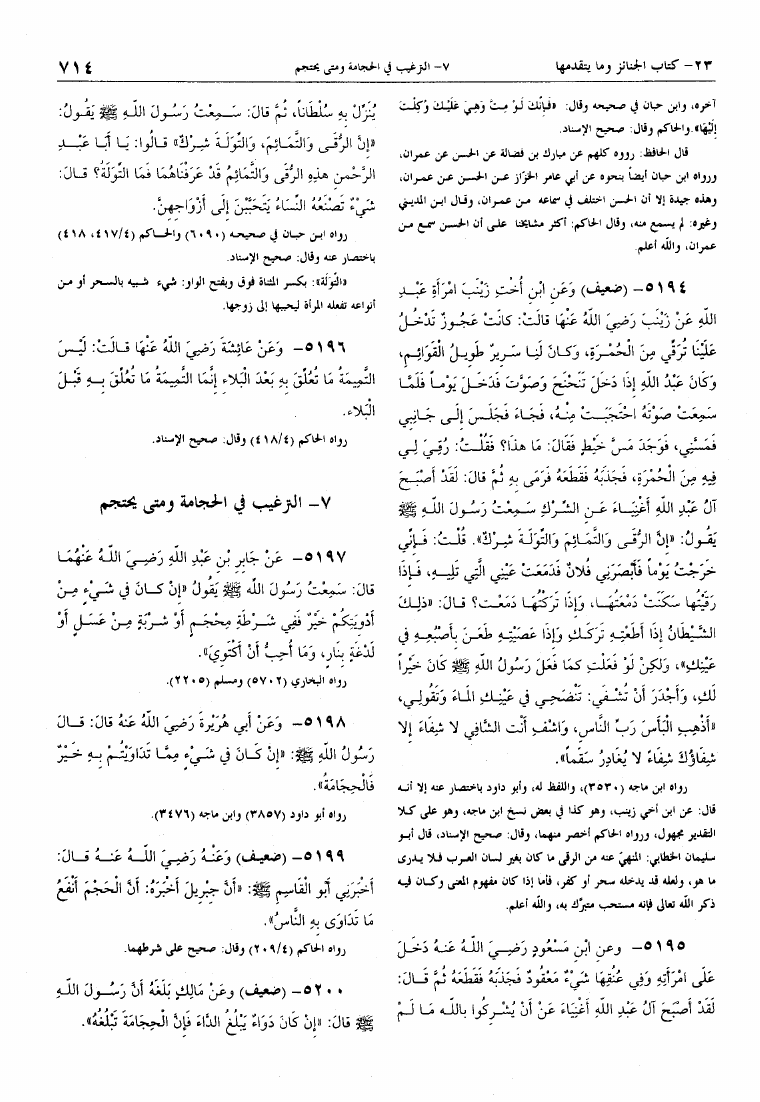 ٢٣- كتاب الجنائز وما يتقدمها
٧- الترغيب في الحجامة ومتى يحتجم
٧١٤
آخره، وابن حبان في صحيحه وقال: «فَإِنَّكَ لَوْ مِتَّ وَهِيَ عَلَيْكَ وُكِلْتَ
إِلَيْهَا». والحاكم وقال: صحيح الإسناد.
قال الحافظ: رووه كلهم عن مبارك بن فضالة عن الحسن عن عمران،
ورواه ابن حبان أيضاً بنحوه عن أبي عامر الخزاز عن الحسن عن عمران،
وهذه جيدة إلا أن الحسن اختلف في سماعه من عمران، وقال ابن المديني
وغيره: لم يسمع منه، وقال الحاكم: أكثر مشايخنا على أن الحسن سمع من
عمران، والله أعلم.
٥١٩٤- (ضعيف) وَعَنِ ابْنِ أُخْتِ زَيْنَبَ امْرَأَةِ عَبْدِ
اللهِ عَنْ زَيْنَبَ رَضِيَ اللهُ عَنْهَا قالَتْ: كانَتْ عَجُوزٌ تَدْخُلُ
عَلَيْنَا تَرْقِي مِنَ الْحُمْرَةِ، وَكَانَ لَنا سَرِيرٌ طَوِيلُ الْقَوَائِمِ،
وَكَانَ عَبْدُ اللهِ إِذَا دَخَلَ تَنَحْنَحَ وَصَوَّتَ فَدَخَلَ يَوْماً فَلَمَّا
سَمِعَتْ صَوْتَهُ احْتَجَبَتْ مِنْهُ، فَجَاءَ فَجَلَسَ إِلَى جَانِبِي
فَمَسَّنِي، فَوَجَدَ مَسَّ خَيْطٍ فَقَالَ: مَا هذَا؟ فَقُلْتُ: رُقِيَ لِي
فِيهِ مِنَ الْحُمْرَةِ، فَجَذَبَهُ فَقَطَعَهُ فَرَمَى بِهِ ثُمَّ قالَ: لَقَدْ أَصْبَحَ
آلُ عَبْدِ اللهِ أَغْنِيَاءَ عَنِ الشِّرْكِ سَمِعْتُ رَسُولَ اللهِ ﷺ
يَقُولُ: «إِنَّ الرُّقَى وَالتَّمَائِمَ وَالتِّوَلَةَ شِرْكٌ». قُلْتُ: فَإِنِّي
خَرَجْتُ يَوْماً فَأَبْصَرَنِي فُلَانٌ فَدَمَعَتْ عَيْنِي الَّتِي تَلِيهِ، فَإِذَا
رَقَيْتُها سَكَنَتْ دَمْعَتُهَا، وَإِذَا تَرَكْتُهَا دَمَعَتْ؟ قالَ: «ذلِكَ
الشَّيْطَانُ إِذَا أَطَعْتِهِ تَرَكَكِ وَإِذَا عَصَيْتِهِ طَعَنَ بِأُصْبُعِهِ فِي
عَيْنِكِ»، وَلكِنْ لَوْ فَعَلْتِ كمَا فَعَلَ رَسُولُ اللهِ ﷺ كَانَ خَيْراً
لَكِ، وَأَجْدَرَ أَنْ تُشْفَيْ: تَنْضَحِي فِي عَيْنِكِ المَاءَ وَتَقُولِي،
«أَذْهِبِ الْبَأْسَ رَبَّ النَّاسِ، وَاشْفِ أَنْتَ الشَّافِي لَا شِفَاءَ إِلَا
شِفَاؤُكَ شِفَاءً لَا يُغَادِرُ سَقَماً».
رواه ابن ماجه (٣٥٣٠)، واللفظ له، وأبو داود باختصار عنه إلا أنه
قال: عن ابن أخي زينب، وهو كذا في بعض نسخ ابن ماجه، وهو على كلا
التقدير مجهول، ورواه الحاكم أخصر منهما، وقال: صحيح الإسناد، قال أبو
سليمان الخطابي: المنهيّ عنه من الرقى ما كان بغير لسان العرب فلا يدرى
ما هو، ولعله قد يدخله سحر أو كفر، فأما إذا كان مفهوم المعنى وكان فيه
ذكر الله تعالى فإنه مستحب متبرَّك به، والله أعلم.
٥١٩٥- وعن ابْنِ مَسْعُودٍ رَضِيَ اللهُ عَنهُ دَخَلَ
عَلَى امْرَأَتِهِ وَفِي عُنُقِهَا شَيْءٌ مَعْقُودٌ فَجَذَبَهُ فَقَطَعَهُ ثُمَّ قَالَ:
لَقَدْ أَصْبَحَ آلُ عَبْدِ اللهِ أَغْنِيَاءَ عَنْ أَنْ يُشْرِكُوا بِاللهِ مَا لَمْ
يُنَزِّلْ بِهِ سُلْطَاناً، ثُمَّ قالَ: سَمِعْتُ رَسُولَ اللهِ ﷺ يَقُولُ:
«إِنَّ الرُّقَى وَالتَّمَائِمَ، وَالتِّوَلَةَ شِرْكٌ» قالُوا: يَا أَبَا عَبْدِ
الرَّحْمنِ هذِهِ الرُّقَى وَالتَّمَائِمُ قَدْ عَرَفْنَاهُمَا فَمَا التِّوَلَةُ؟ قالَ:
شَيْءٌ تَصْنَعُهُ النِّسَاءُ يَتَحَبَّبْنَ إِلَى أَزْوَاجِهِنَّ.
رواه ابن حبان في صحيحه (٦٠٩٠) والحاكم (٤١٧/٤، ٤١٨)
باختصار عنه وقال: صحيح الإسناد.
«التِّوَلَة»: بكسر المثناة فوق وبفتح الواو: شيء شبيه بالسحر أو من
أنواعه تفعله المرأة ليحبها إلى زوجها.
٥١٩٦- وَعَنْ عَائِشَةَ رَضِيَ اللهُ عَنْهَا قالَتْ: لَيْسَ
التَّمِيمَةُ مَا تُعُلِّقَ بِهِ بَعْدَ الْبَلَاءِ إِنَّمَا التَّمِيمَةُ مَا تُعُلِّقَ بِهِ قَبْلَ
الْبَلَاءِ.
رواه الحاكم (٤١٨/٤) وقال: صحيح الإسناد.
٧- الترغيب في الحجامة ومتى يحتجم
٥١٩٧- عَنْ جَابِرِ بْنِ عَبْدِ اللهِ رَضِيَ اللهُ عَنْهُمَا
قالَ: سَمِعْتُ رَسُولَ الله ﷺ يَقُولُ «إِنْ كانَ فِي شَيْءٍ مِنْ
أَدْوِيَتِكُمْ خَيْرٌ فَفِي شَرْطَةِ مِحْجَمٍ أَوْ شَرْبَةٍ مِنْ عَسَلٍ أَوْ
لَدْغَةٍ بِنَارٍ، وَمَا أُحِبُّ أَنْ أَكْتَوِيَ».
رواه البخاري (٥٧٠٢) ومسلم (٢٢٠٥).
٥١٩٨- وَعَنْ أَبِي هُرَيْرَةَ رَضِيَ اللهُ عَنْهُ قالَ: قالَ
رَسُولُ اللهِ ﷺ: «إِنْ كَانَ فِي شَيْءٍ مِمَّا تَدَاوَيْتُمْ بِهِ خَيْرٌ
فَالْحِجَامَةُ».
رواه أبو داود (٣٨٥٧) وابن ماجه (٣٤٧٦).
٥١٩٩- (ضعيف) وَعَنْهُ رَضِيَ اللهُ عَنهُ قالَ:
أَخْبَرَنِي أَبُو الْقَاسِمِ ﷺ: «أَنَّ جِبْرِيلَ أَخْبَرَهُ: أَنَّ الْحَجْمَ أَنْفَعُ
مَا تَدَاوَى بِهِ النَّاسُ».
رواه الحاكم (٢٠٩/٤) وقال: صحيح على شرطهما.
٥٢٠٠- (ضعيف) وعَنْ مَالِكٍ بَلَغَهُ أَنَّ رَسُولَ اللهِ
ﷺ قالَ: «إِنْ كَانَ دَوَاءٌ يَبْلُغُ الدَّاءَ فَإِنَّ الْحِجَامَةَ تَبْلُغُهُ».